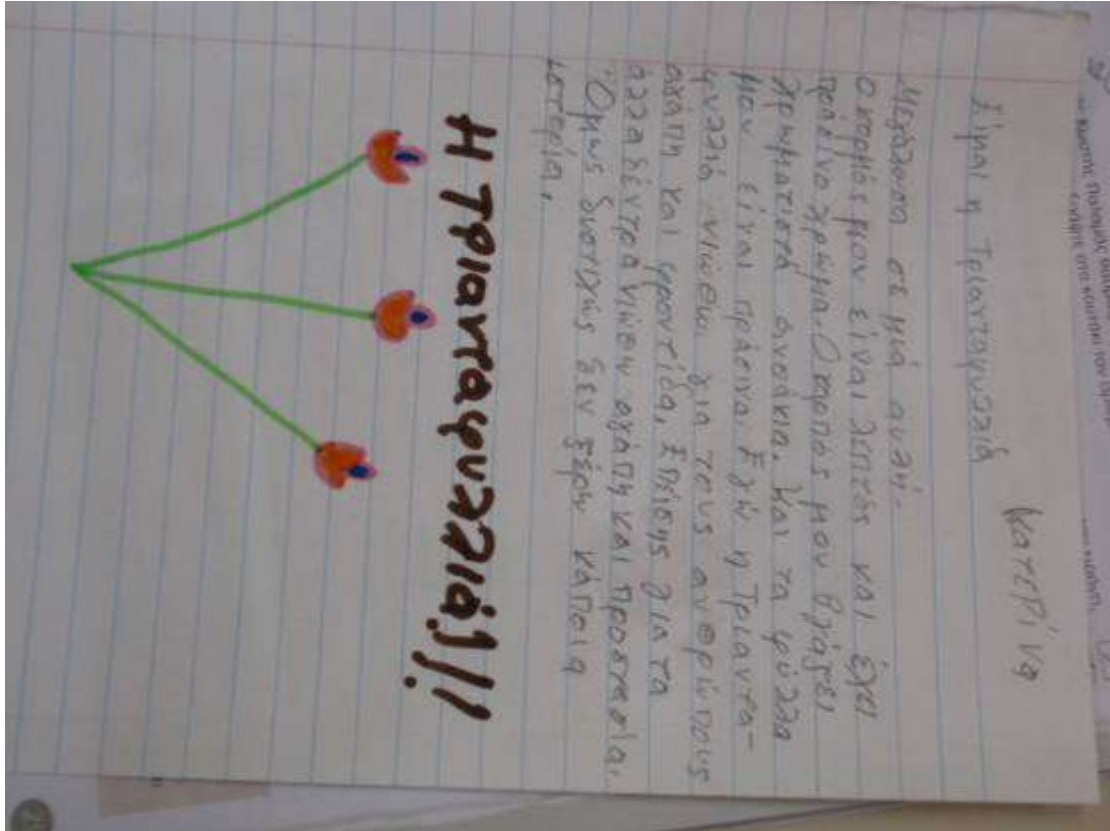 Κατερίνα
Είμαι η Τριανταφυλλιά
Μεγάλωσα σε μιά αυλή.
Ο κορμός μου είναι λεπτός και έχει
πράσινο χρώμα. Ο καρπός μου βγάζει
χρωματιστά ανθάκια. Και τα φύλλα
μου είναι πράσινα. Εγώ η Τριαντα-
φυλλιά νιώθω για τους ανθρώπους
αγάπη και φροντίδα. Επίσης για τα
άλλα δέντρα νιώθω αγάπη και προστασία.
Όμως δυστυχώς δεν ξέρω κάποια
ιστορία.
Η τριανταφυλλιά!!!